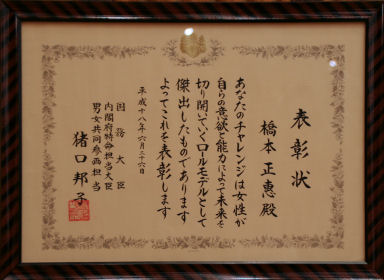 表彰状
橋本正恵殿
あなたのチャレンジは女性が
自らの意欲と能力によって未来を
切り開いていくロールモデルとして
傑出したものであります
よってこれを表彰します
平成十八年六月二十六日
国務大臣
内閣府特命担当大臣
男女共同参画担当
猪口邦子